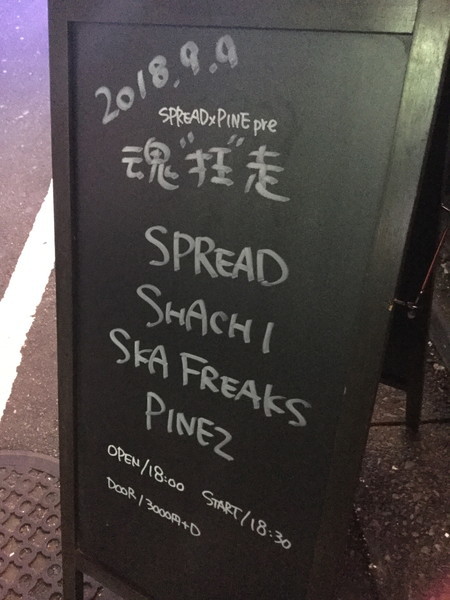 2018.9.9
SPREAD×PINE pre
魂"狂"走
SPREAD
SHACHI
SKA FREAKS
PINEZ
OPEN/18:00 START/18:30
DOOR/3000円+D